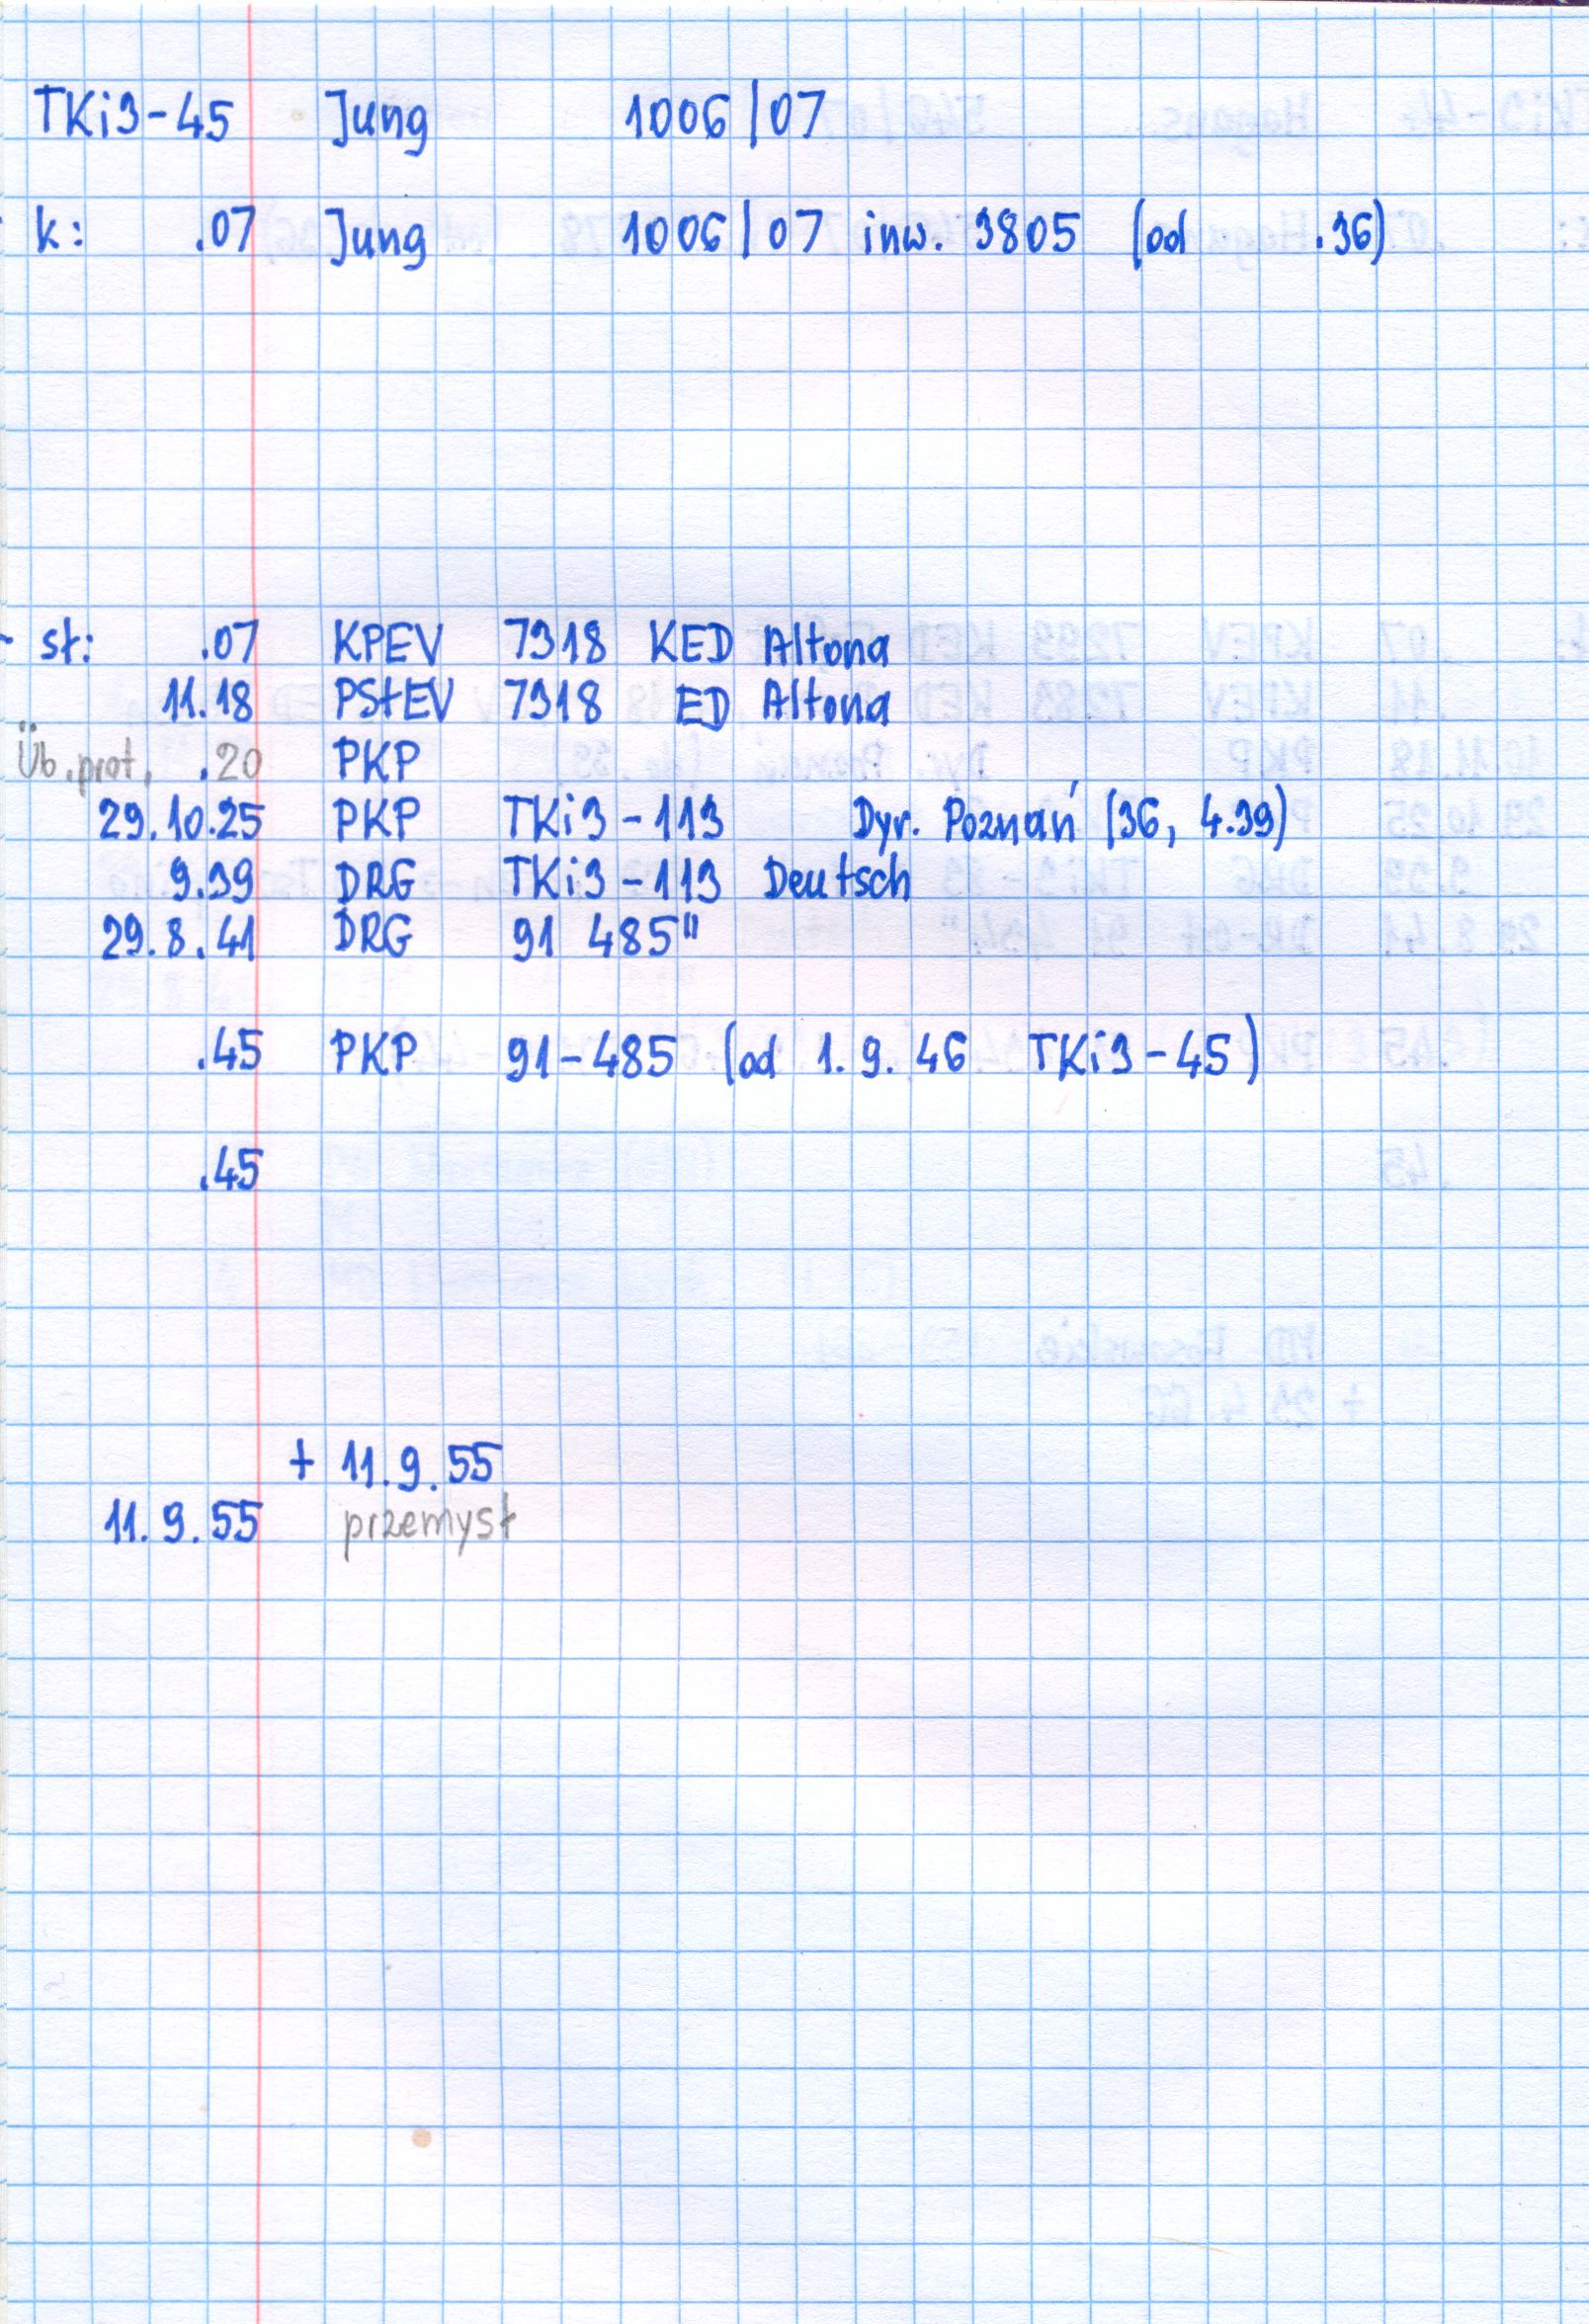 TKi3-45 Jung 1006/07
k: .07 Jung 1006/07 inw. 3805 (od .36)
st: .07 KPEV 7318 KED Altona
11.18 PStEV 7318 ED Altona
Üb.prot. .20 PKP
29.10.25 PKP TKi3-113 Dyr. Poznań (36, 4.39)
9.39 DRG TKi3-113 Deutsch
29.8.41 DRG 91 485"
.45 PKP 91-485 (od 1.9.46 TKi3-45)
.45
+ 11.9.55
11.9.55 przemysł